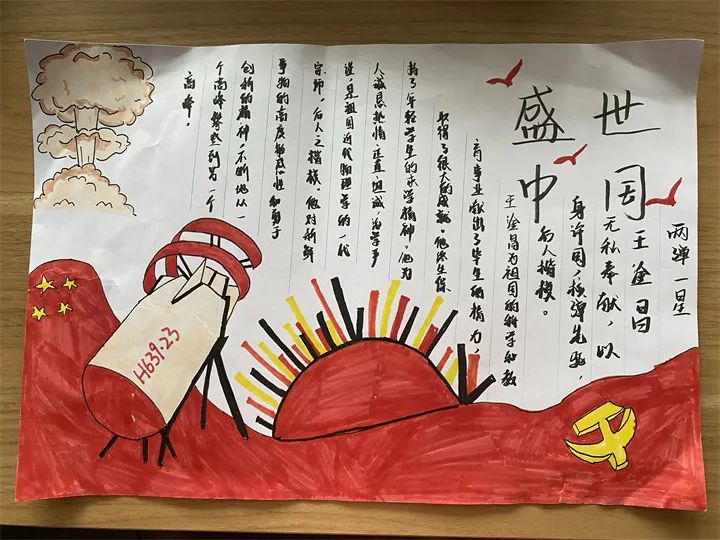 盛世
中国
两弹一星
王淦昌
无私奉献,以
身许国,核弹先驱,
后人楷模。
王淦昌为祖国的科学和教
育事业献出了毕生的精力,
取得了很大的成就。他终生保
持了年轻学生的求学精神。他为
人诚恳热情,正直坦诚,治学严
谨,是祖国近代物理学的一代
宗师,后人之楷模。他对新鲜
事物的高度敏感性和勇于
创新的精神,不断地从一
个高峰攀登到另一个
高峰。
H639.23